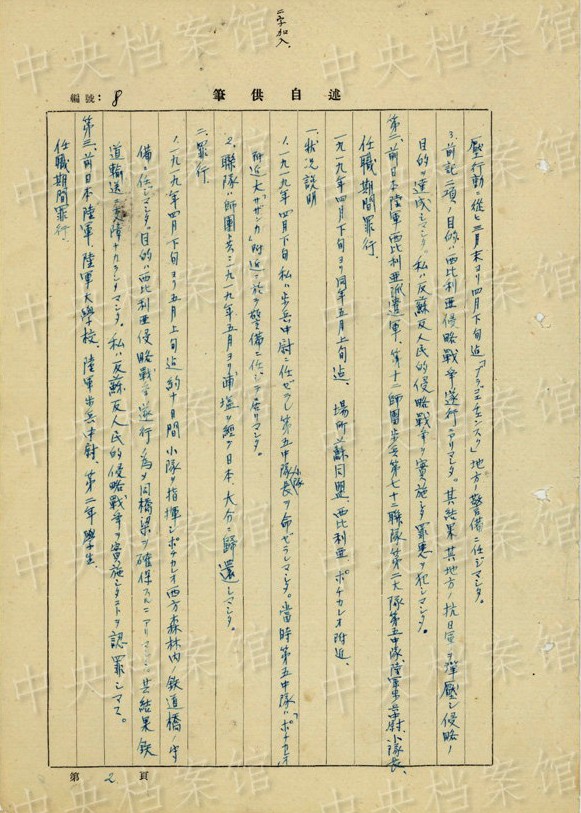 二字加入
編號：8
筆供自述
壓行動ニ從ヒ三月末ヨリ四月下旬迄「アラゴエチエンスク」地方ノ警備ニ任ジマシタ。
3.前記二項ノ目的ハ西比利亜侵略戰爭遂行デアリマシタ。其結果其地方ノ抗日軍ヲ彈壓シ侵略ノ
目的ヲ達成シマシタ。私ハ反蘇反人民的侵略戰爭ヲ實施シタ罪惡ヲ犯シマシタ。
第二、前日本陸軍西比利亜派遣軍、第十二師團步兵第七十二聯隊第二大隊第五中隊、陸軍步兵中尉、小隊長、
任職期間罪行、
一九一九年四月下旬ヨリ同年五月上旬迄、場所ハ蘇同盟西比利亜ポチカレオ附近、
一、狀況說明
1.一九一九年四月下旬私ハ步兵中尉ニ任ゼラレ第五中隊小隊長ヲ命ゼラレマシタ。當時第五中隊ハ「ポチカレオ」
附近ニ於テ警備ニ任ジテ居リマシタ。
2.聯隊ハ師團ト共ニ一九一九年五月ヨリ浦塩ヲ經テ日本、大分ニ歸還シマシタ。
二、罪行、
1.一九一九年四月下旬ヨリ五月上旬迄約十日間小隊ヲ指揮シポチカレオ西方森林内ノ鉄道橋ノ守
備ニ任ジマシタ。目的ハ西比利亜侵略戰爭遂行ノ為メ同橋梁ヲ確保スルニアリマシタ。其結果鉄
道輸送ニ支障ナカラシメマシタ。私ハ反蘇反人民的侵略戰爭ヲ實施シタコトヲ認罪シマス。
第三、前日本陸軍、陸軍大學校、陸軍步兵中尉、第二年學生、
任職期間罪行、
第2頁
中央档案馆